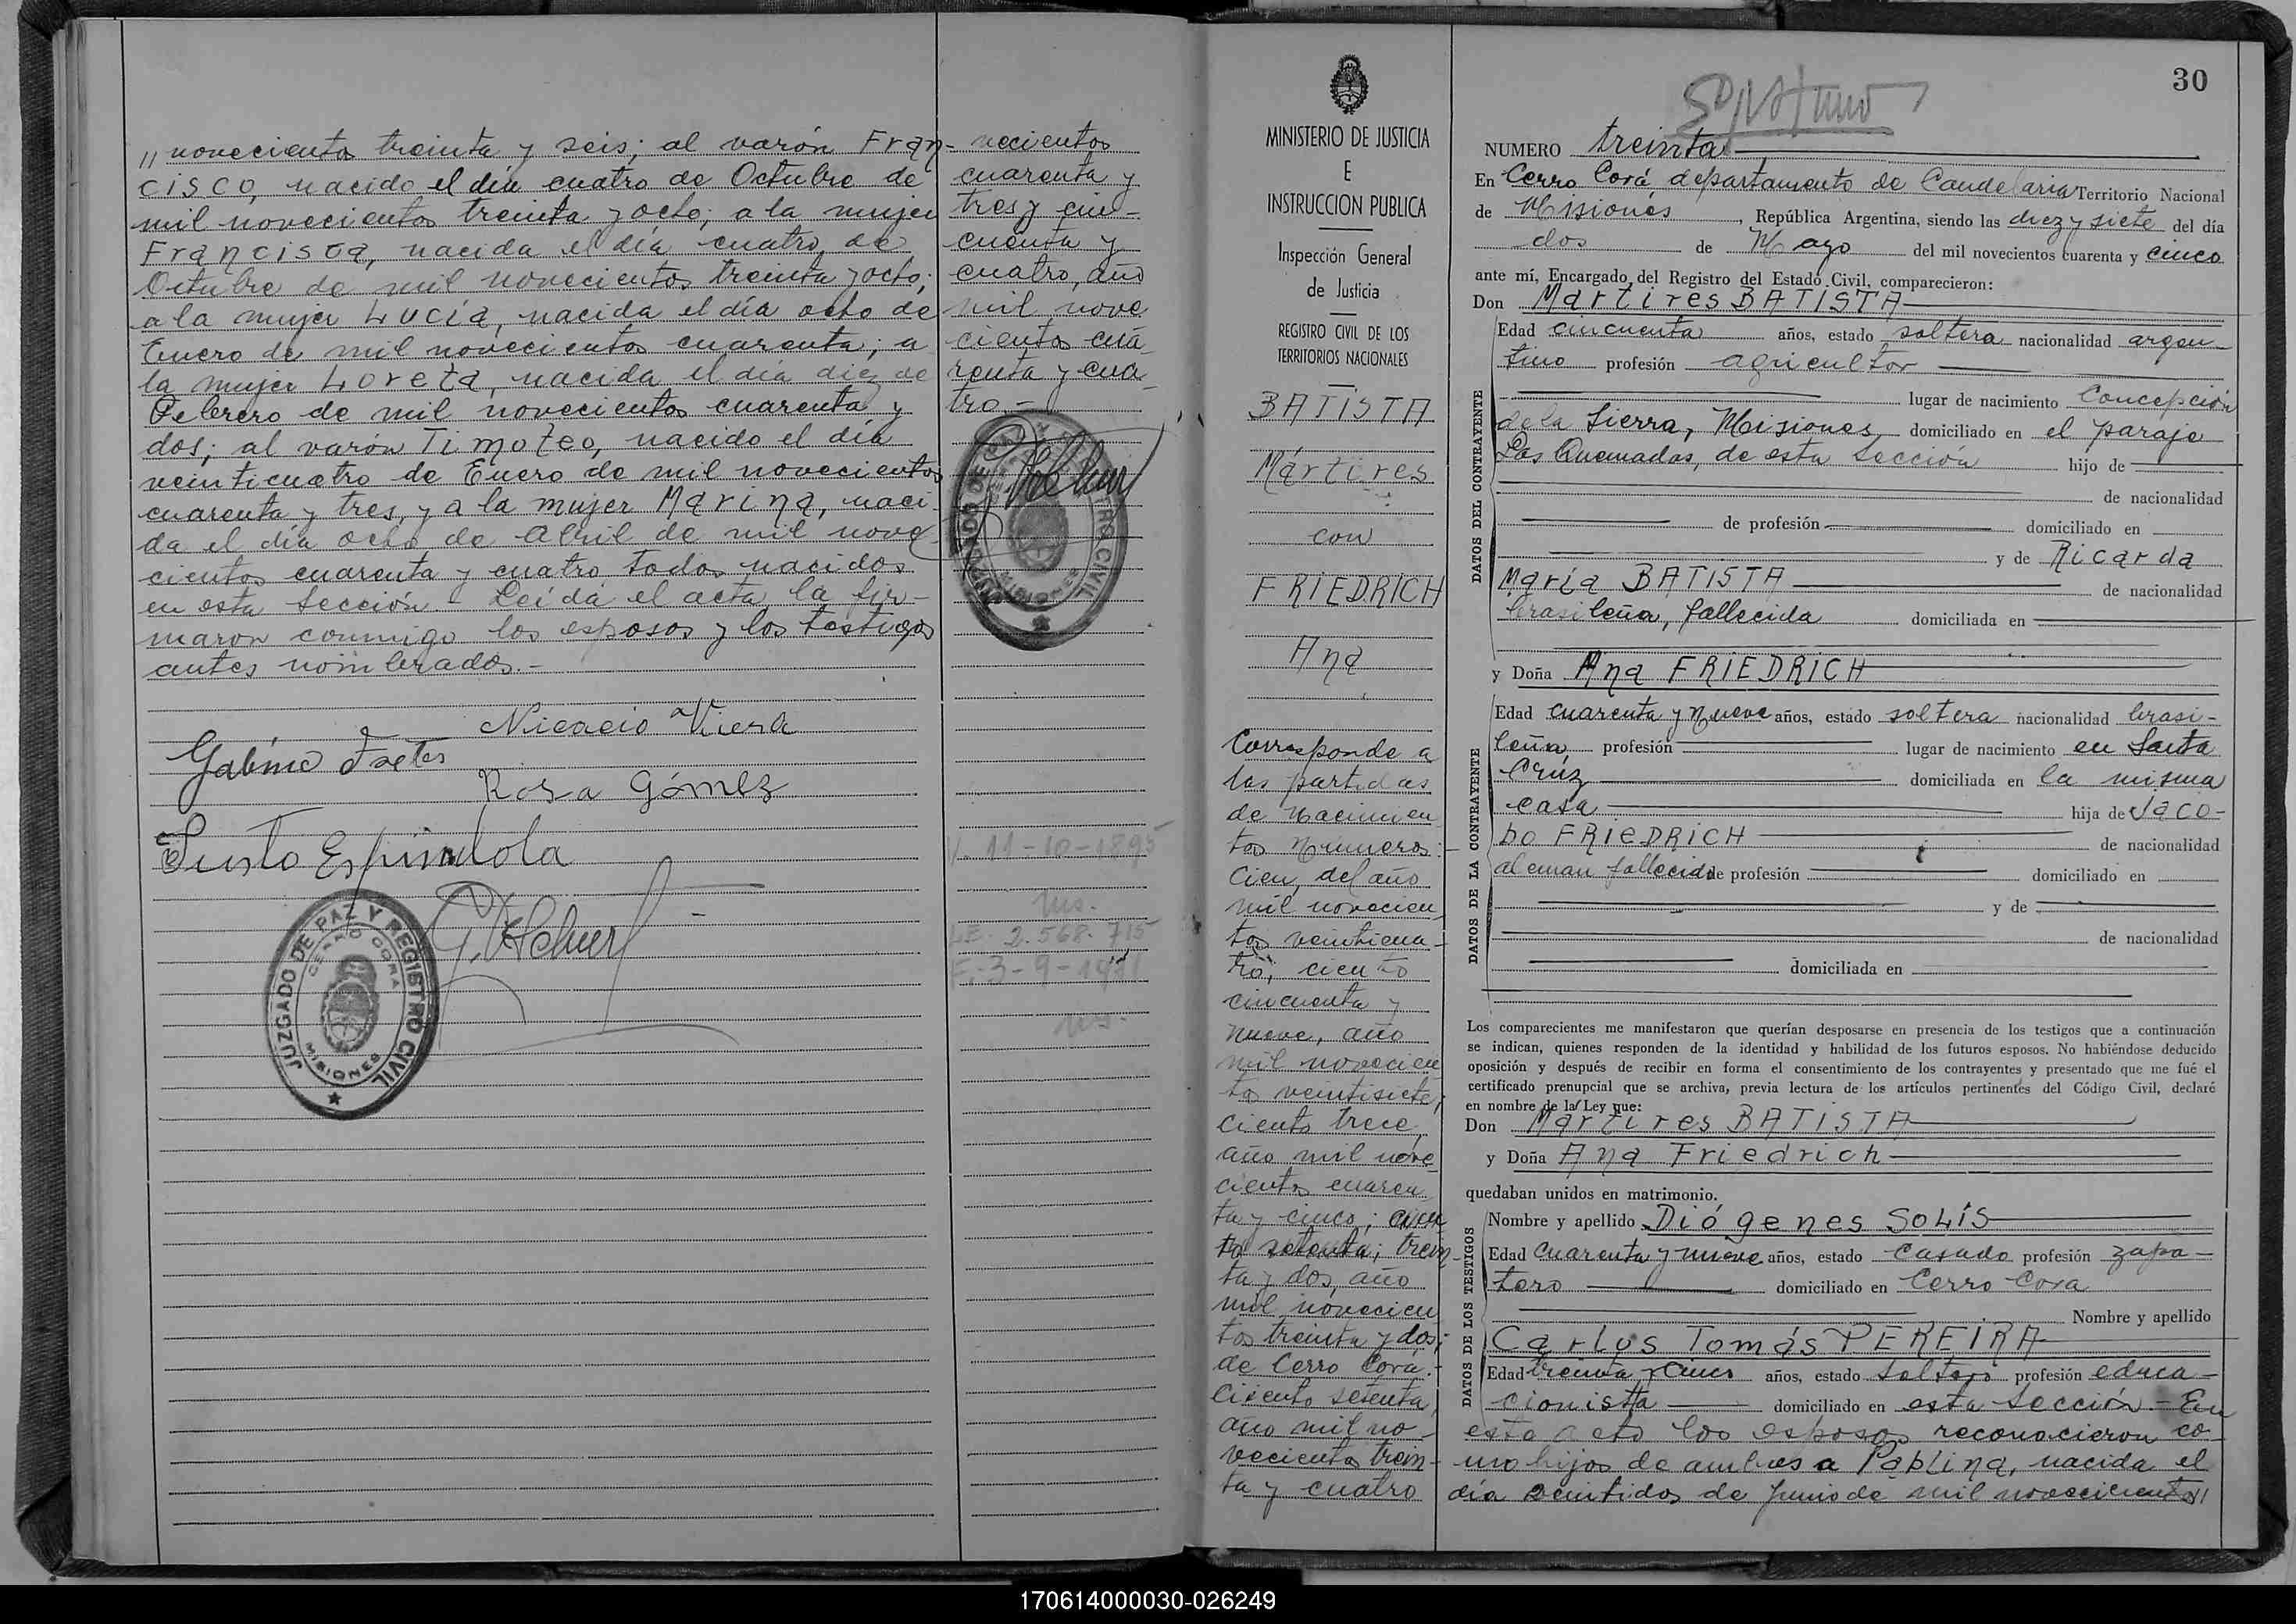 " novecientos treinta y seis; al varón Fran-
cisco, nacido el día cuatro de Octubre de
mil novecientos treinta y ocho; a la mujer
Francisca, nacida el día cuatro de
Octubre de mil novecientos treinta y ocho;
a la mujer Lucía, nacida el día ocho de
Enero de mil novecientos cuarenta; a
la mujer Loreta, nacida el día diez de
Febrero de mil novecientos cuarenta y
dos; al varón Timoteo, nacido el día
veinticuatro de Enero de mil novecientos
cuarenta y tres, y a la mujer Marina, naci
da el día ocho de Abril de mil nove
cientos cuarenta y cuatro todos nacidos
en esta Sección.- Leída el acta la fir-
maron conmigo los esposos y los testigos
antes nombrados.-
Nicacio Viera
Gabino Fretes
Rosa Gómez
Justo Espindola
JUZGADO DE PAZ Y REGISTRO CIVIL
CERRO CORA
MISIONES
vecientos
cuarenta y
tres y cin-
cuenta y
cuatro, año
mil nove
cientos cua-
renta y cua-
tro.-
11-10-1895
2.568.715
MINISTERIO DE JUSTICIA
E
INSTRUCCION PUBLICA
Inspección General
de Justicia
REGISTRO CIVIL DE LOS
TERRITORIOS NACIONALES
BATISTA
Mártires
con
FRIEDRICH
Ana
Corresponde a
las partidas
de nacimien
tos Números:-
Cien, del año
mil novecien
tos veinticua-
tro; ciento
cincuenta y
nueve, año
mil novecien
tos veintisiete;
ciento trece,
año mil nove
cientos cuaren
ta y cinco; cien
to setenta; trein
ta y dos, año
mil novecien
tos treinta y dos;
de Cerro Corá.-
Ciento setenta,
año mil no-
vecientos trein-
ta y cuatro
30
NUMERO treinta
En Cerro Corá, departamento de Candelaria Territorio Nacional
de Misiones, República Argentina, siendo las diez y siete del día
dos de Mayo del mil novecientos cuarenta y cinco
ante mí, Encargado del Registro del Estado Civil, comparecieron:
Don Martires BATISTA
DATOS DEL CONTRAYENTE
Edad cincuenta años, estado soltero nacionalidad argen-
tino profesión agricultor
lugar de nacimiento Concepción
de la Sierra, Misiones domiciliado en el paraje
Las Quemadas, de esta Sección hijo de
de nacionalidad
de profesión domiciliado en
y de Ricarda
María BATISTA de nacionalidad
brasileña, fallecida domiciliada en
y Doña Ana FRIEDRICH
DATOS DE LA CONTRAYENTE
Edad cuarenta y nueve años, estado soltera nacionalidad brasi-
leña profesión lugar de nacimiento en Santa
Crúz domiciliada en la misma
casa hija de Jaco-
bo FRIEDRICH de nacionalidad
aleman fallecido de profesión domiciliado en
y de
de nacionalidad
domiciliada en
Los comparecientes me manifestaron que querían desposarse en presencia de los testigos que a continuación
se indican, quienes responden de la identidad y habilidad de los futuros esposos. No habiéndose deducido
oposición y después de recibir en forma el consentimiento de los contrayentes y presentado que me fué el
certificado prenupcial que se archiva, previa lectura de los artículos pertinentes del Código Civil, declaré
en nombre de la Ley que:
Don Martires BATISTA
y Doña Ana Friedrich
quedaban unidos en matrimonio.
DATOS DE LOS TESTIGOS
Nombre y apellido Diógenes SOLÍS
Edad cuarenta y nueve años, estado Casado profesión zapa-
tero domiciliado en Cerro Cora
Nombre y apellido
Carlos Tomás PEREIRA
Edad treinta y cinco años, estado soltero profesión educa-
cionista domiciliado en esta Sección.- En
este acto los esposos reconocieron co-
mo hijos de ambos a Pablina, nacida el
día veintidos de Junio de mil novecientos "
170614000030-026249